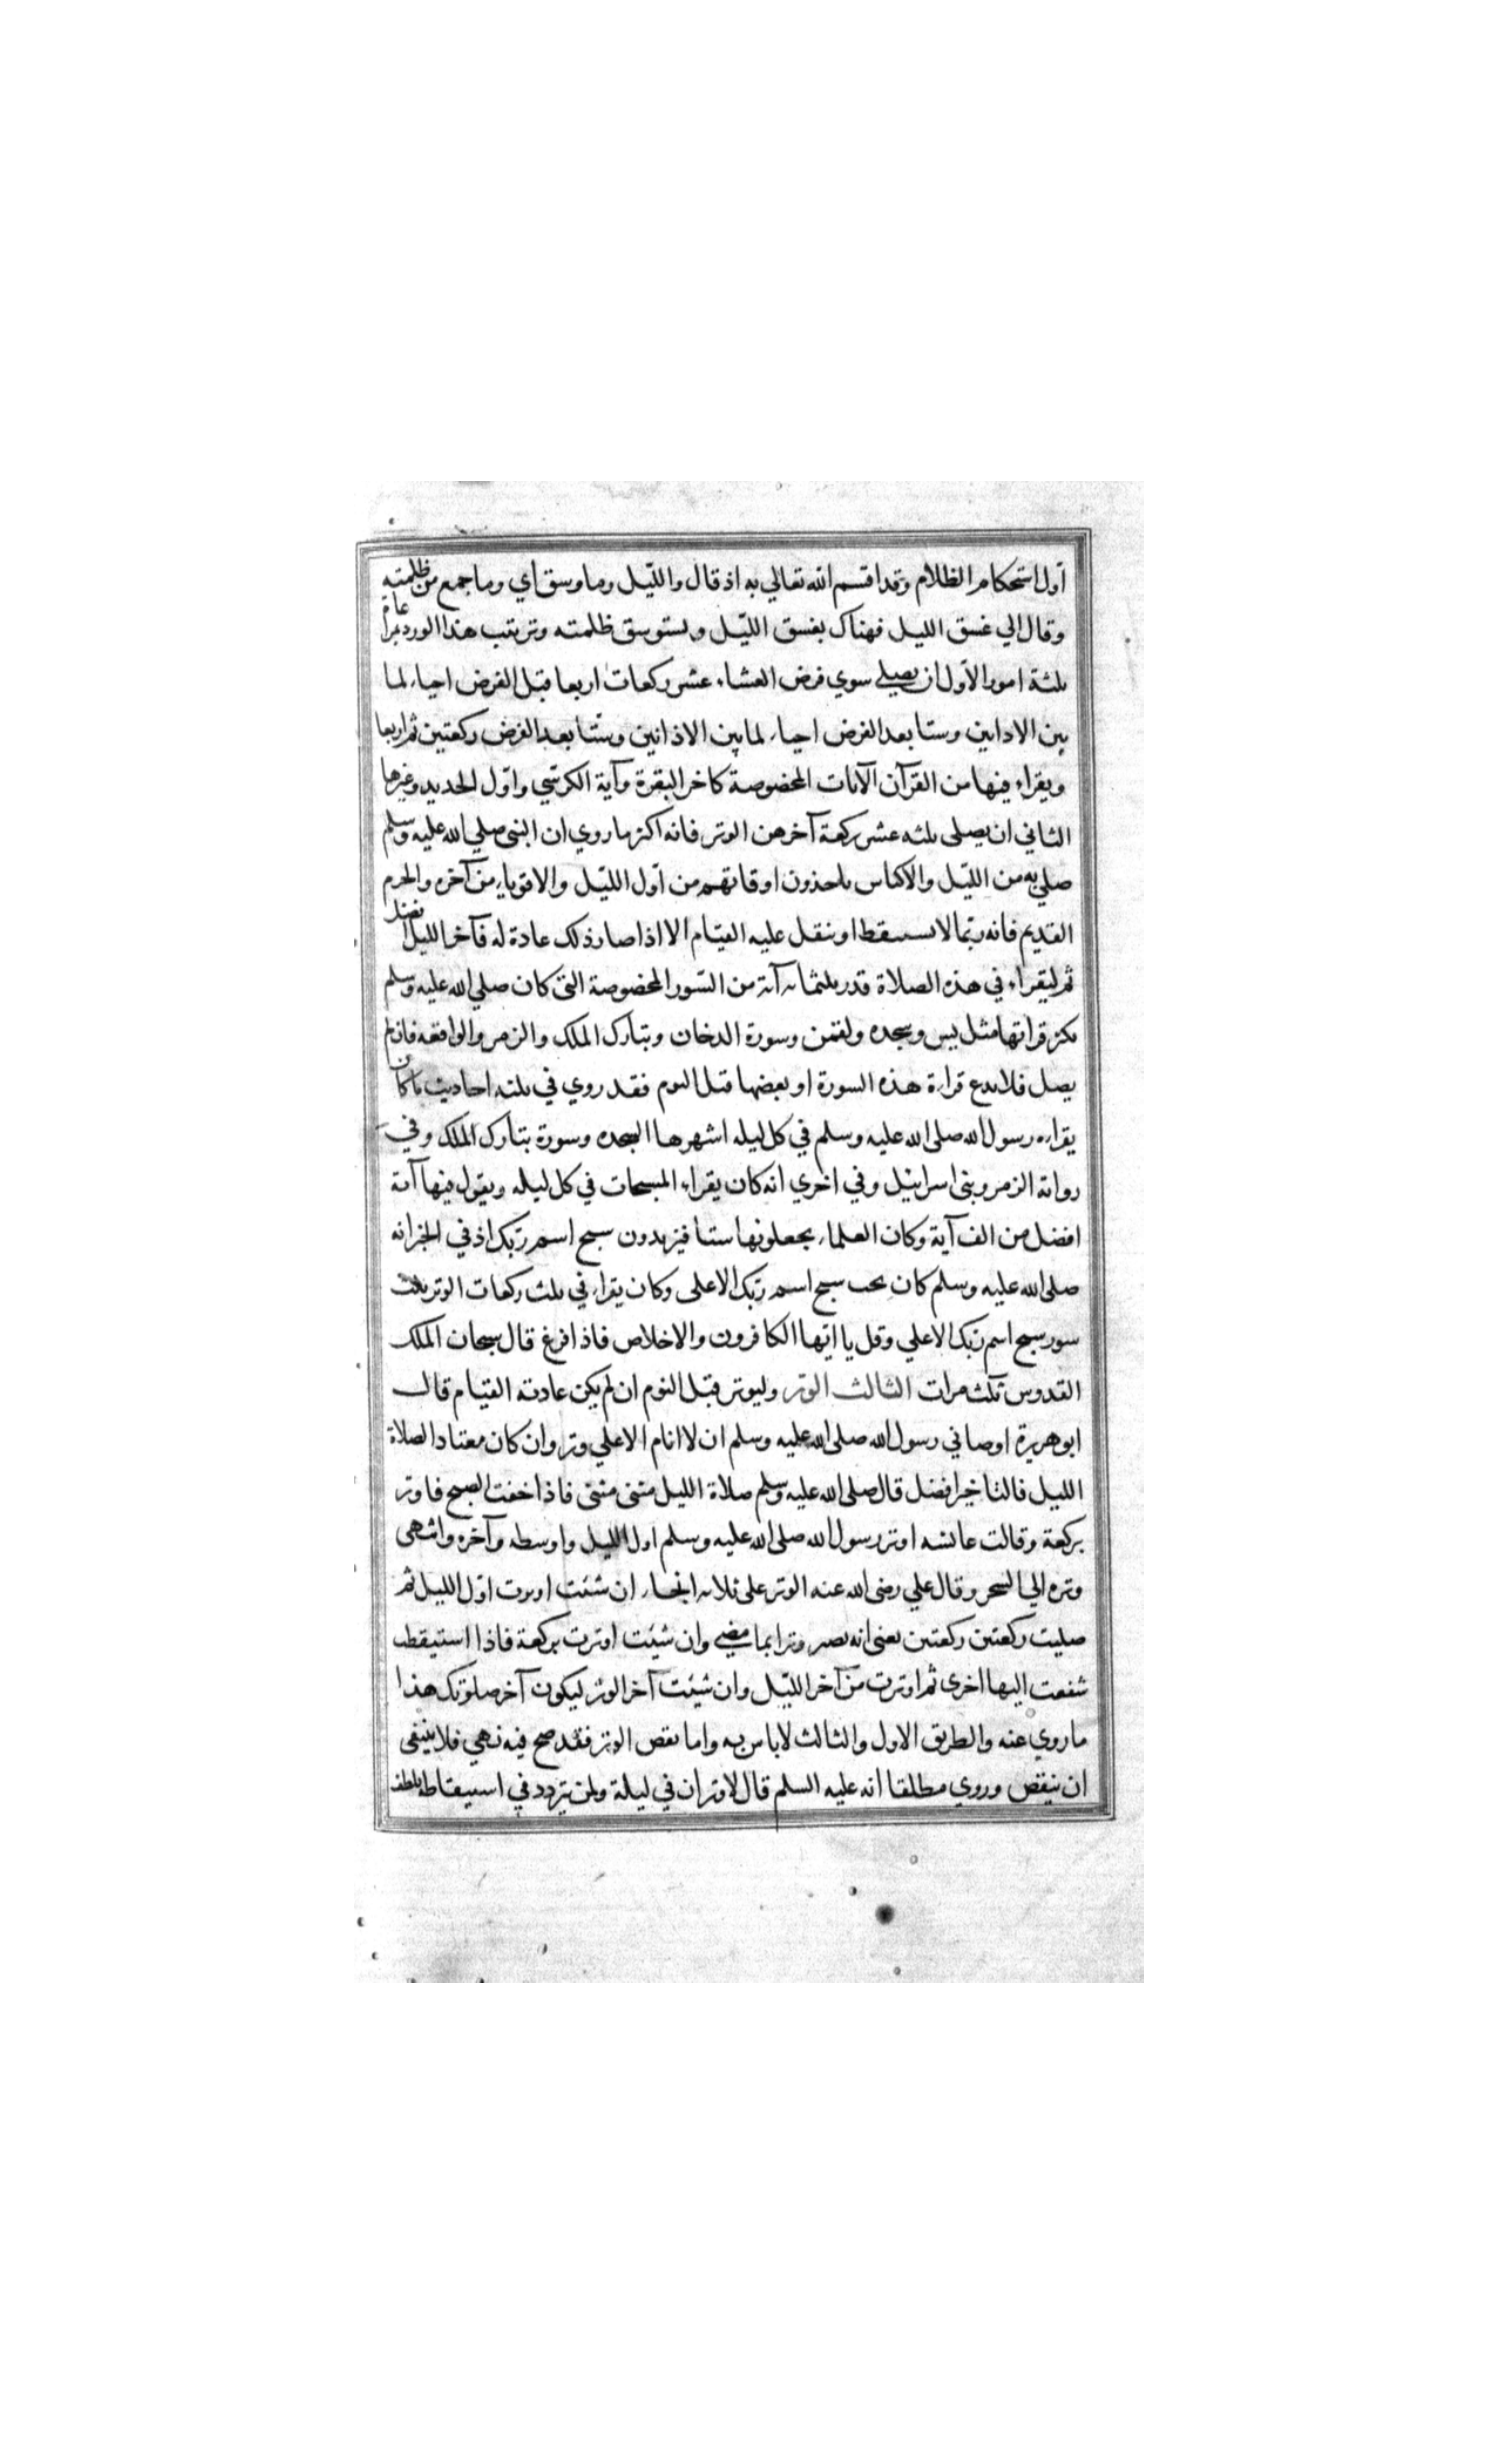 أول استحكام الظلام وقد اقسم الله تعالي به اذ قال والليل وما وسق اي وما جمع من ظلمته
وقال الي غسق الليل فهناك يغسق الليل ويستوسق ظلمته وترتيب هذا الورد بمراعاة
ثلثة امور الاول ان يصلي سوي فرض العشاء عشر ركعات اربعا قبل الفرض احياء لما
بين الاذانين وستا بعد الفرض احياء لما بين الاذانين وستا بعد الفرض ركعتين ثم اربعا
ويقراء فيها من القرآن الآيات المخصوصة كاخر البقرة وآية الكرسي واول الحديد وغيرها
الثاني ان يصلي ثلثه عشر ركعة آخرهن الوتر فانه اكثر ما روي ان النبي صلي الله عليه وسلم
صلي به من الليل والاكياس ياخذون اوقاتهم من اول الليل والاقوياء من آخره والحزم
القديم فانه ربما لا يستيقظ او يثقل عليه القيام الا اذا صار ذلك عادة له فآخر الليل افضل
ثم ليقراء في هذه الصلاة قدر ثلثمايه آية من السور المخصوصة التي كان صلي الله عليه وسلم
يكثر قراتها مثل يس وسجده ولقمن وسورة الدخان وتبارك الملك والزمر والواقعه فان لم
يصل فلا يدع قراءة هذه السورة او بعضها قبل النوم فقد روي في ثلثه احاديث ما كان
يقراءه رسول الله صلي الله عليه وسلم في كل ليله اشهرها السجده وسورة تبارك الملك وفي
رواية الزمر وبني اسرائيل وفي اخري انه كان يقراء المسبحات في كل ليله ويقول فيها آية
افضل من الف آية وكان العلماء يجعلونها ستا فيزيدون سبح اسم ربك اذ في الخبر انه
صلي الله عليه وسلم كان يحب سبح اسم ربك الاعلي وكان يقراء في ثلث ركعات الوتر بثلث
سور سبح اسم ربك الاعلي وقل يا ايها الكافرون والاخلاص فاذا فرغ قال سبحان الملك
القدوس ثلث مرات الثالث الوتر وليوتر قبل النوم ان لم يكن عادته القيام قال
ابو هريرة اوصاني رسول الله صلي الله عليه وسلم ان لا انام الا علي وتر وان كان معتادا لصلاة
الليل فالتاخير افضل قال صلي الله عليه وسلم صلاة الليل مثني مثني فاذا خفت الصبح فاوتر
بركعة وقالت عائشه اوتر رسول الله صلي الله عليه وسلم اول الليل واوسطه وآخره وانتهي
وتره الي السحر وقال علي رضي الله عنه الوتر علي ثلاثه انحاء ان شئت اوترت اول الليل ثم
صليت ركعتين ركعتين يعني انه يصير وترا بما مضي وان شئت اوترت بركعة فاذا استيقظت
شفعت اليها اخري ثم اوترت من آخر الليل وان شئت آخر الوتر ليكون آخر صلوتك هذا
ما روي عنه والطريق الاول والثالث لا باس به واما نقض الوتر فقد صح فيه نهي فلا ينبغي
ان ينقض وروي مطلقا انه عليه السلم قال لا وتران في ليلة ولمن يتردد في استيقاظه تلطف